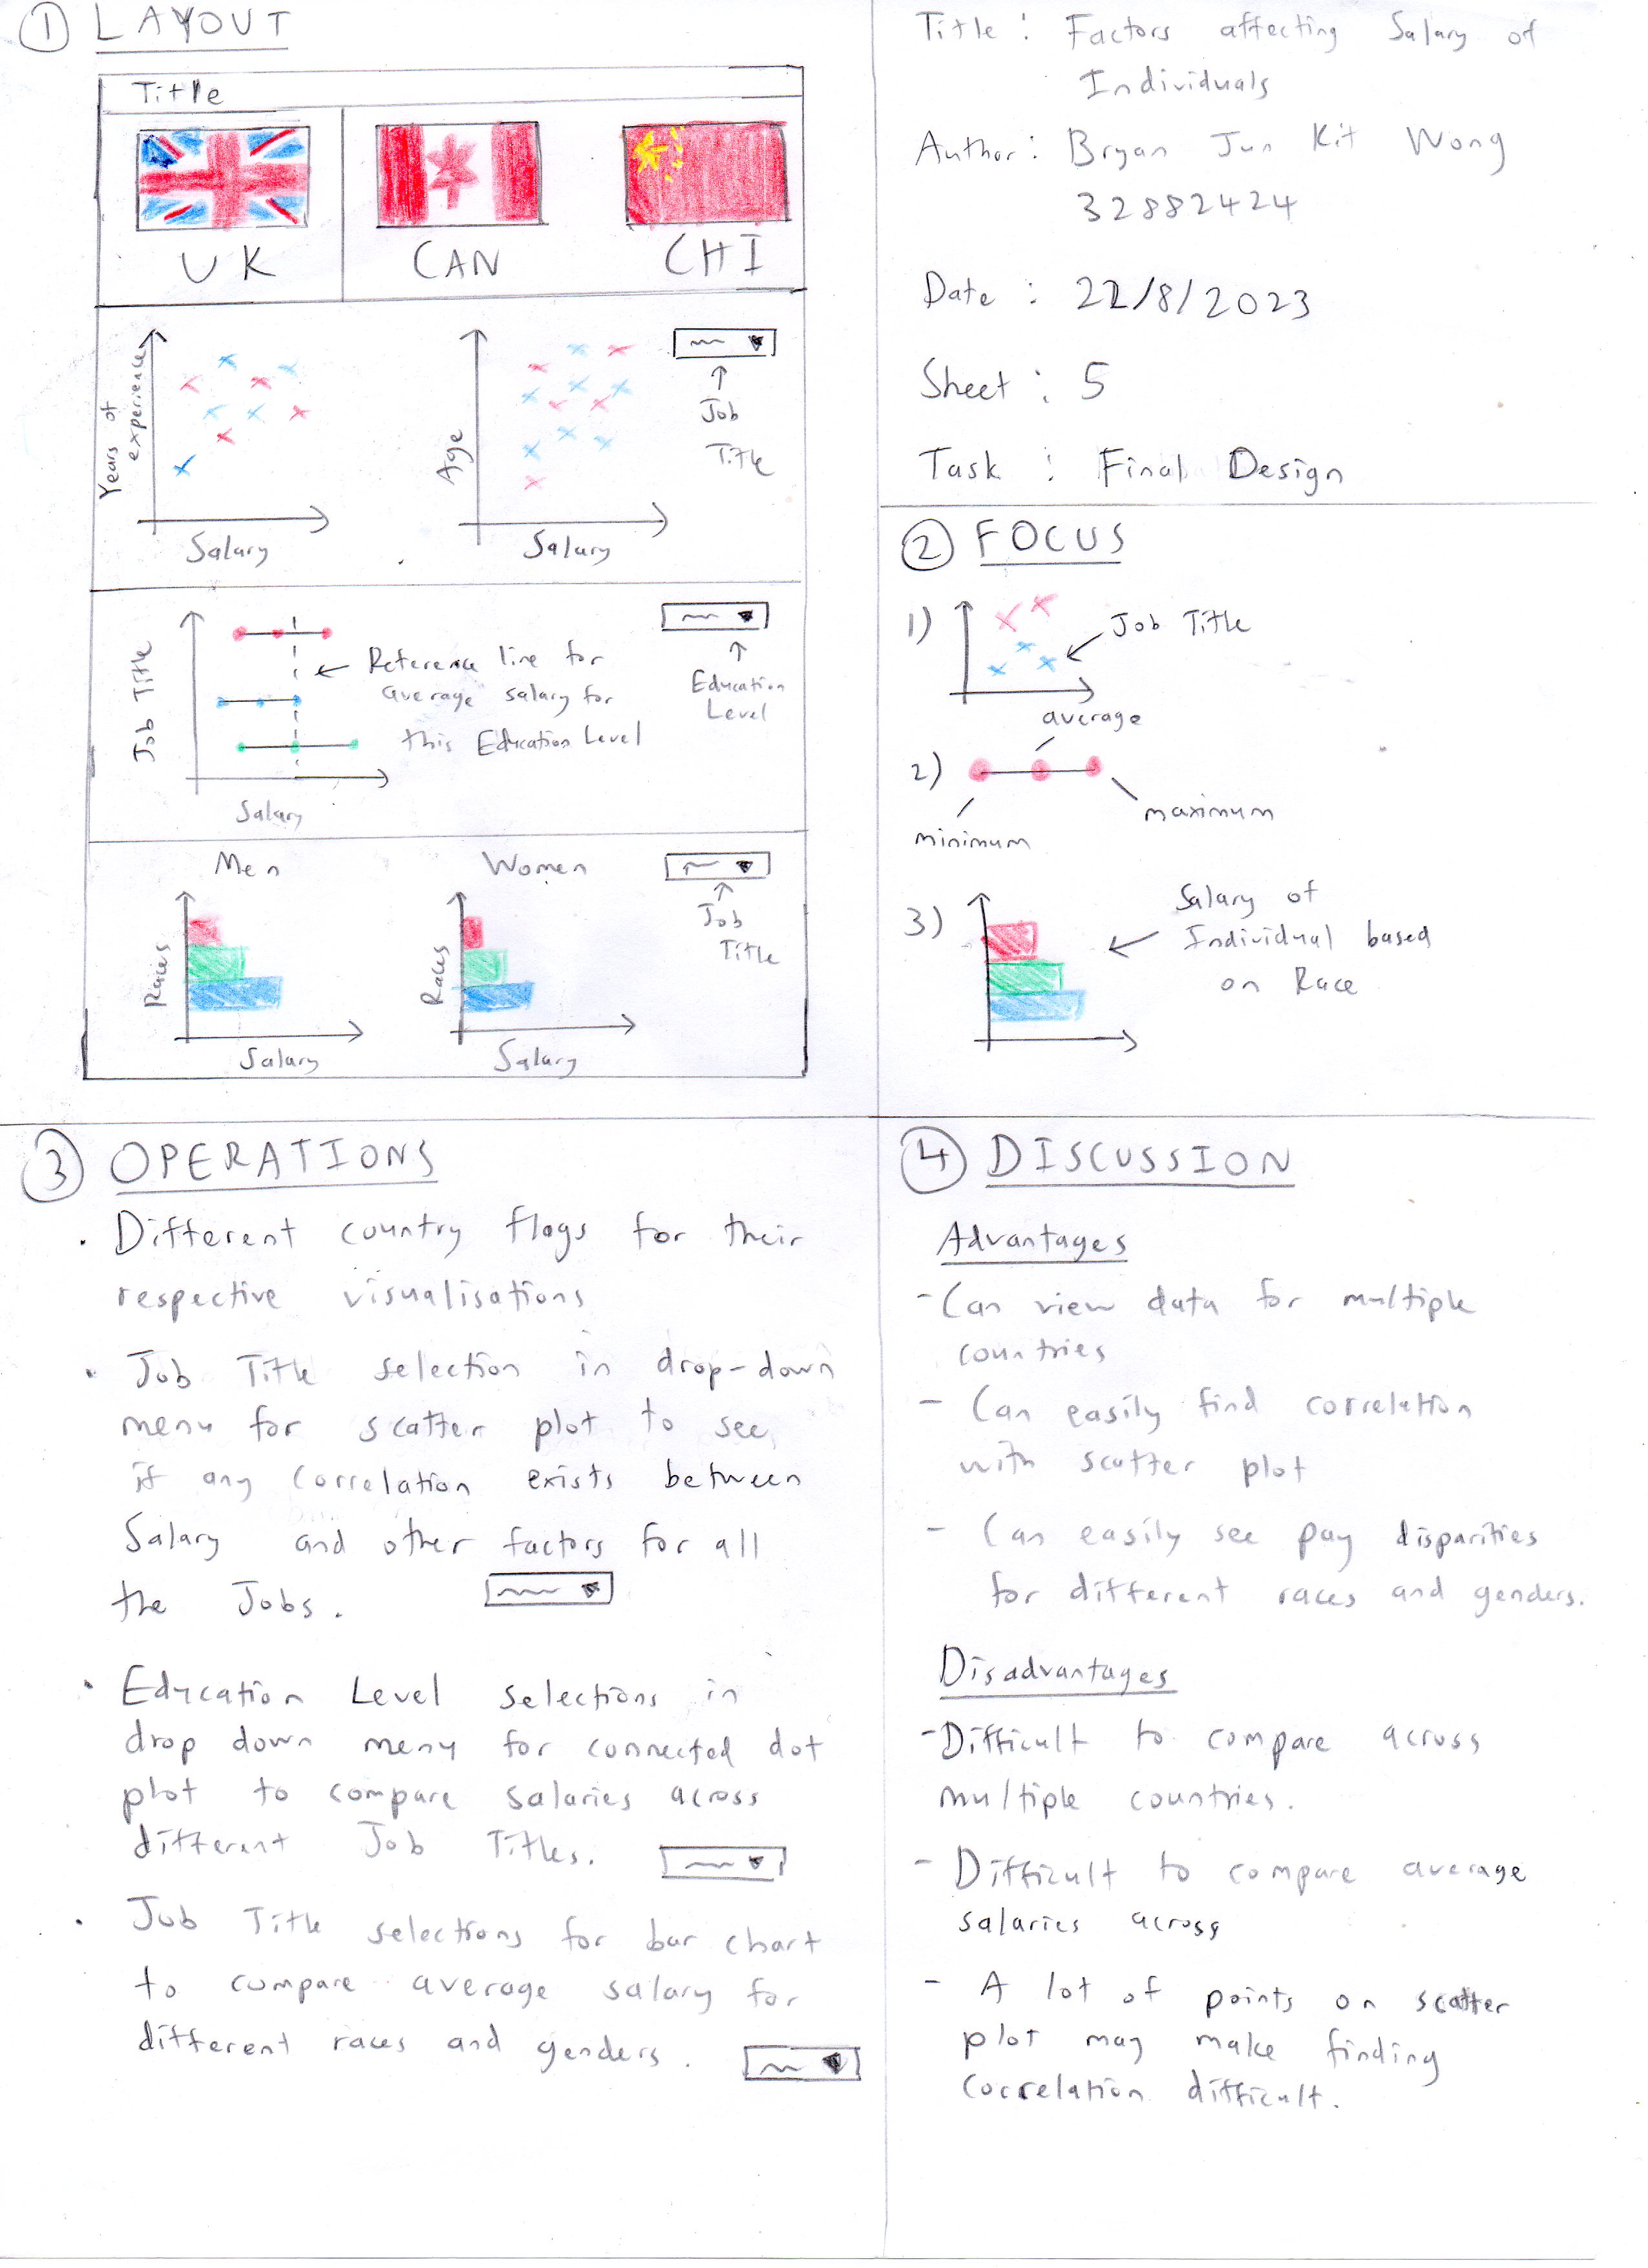 1 LAYOUT
Title
UK
CAN
CHI
Years of
experience
Salary
Age
Salary
Job
Title
Job Title
Reference line for
average salary for
this Education Level
Education
Level
Salary
Men
Women
Races
Salary
Races
Salary
Job
Title
Title : Factors affecting Salary of
Individuals
Author : Bryan Jun Kit Wong
32882424
Date : 22/8/2023
Sheet : 5
Task : Final Design
2 FOCUS
1)
Job Title
average
2)
minimum
maximum
3)
Salary of
Individual based
on Race
3 OPERATIONS
• Different country flags for their
respective visualisations
• Job Title selection in drop-down
menu for scatter plot to see
if any correlation exists between
Salary and other factors for all
the Jobs.
• Education Level selections in
drop down menu for connected dot
plot to compare salaries across
different Job Titles.
• Job Title selections for bar chart
to compare average salary for
different races and genders.
4 DISCUSSION
Advantages
- Can view data for multiple
countries
- Can easily find correlation
with scatter plot
- Can easily see pay disparities
for different races and genders.
Disadvantages
- Difficult to compare across
multiple countries.
- Difficult to compare average
salaries across
- A lot of points on scatter
plot may make finding
correlation difficult.